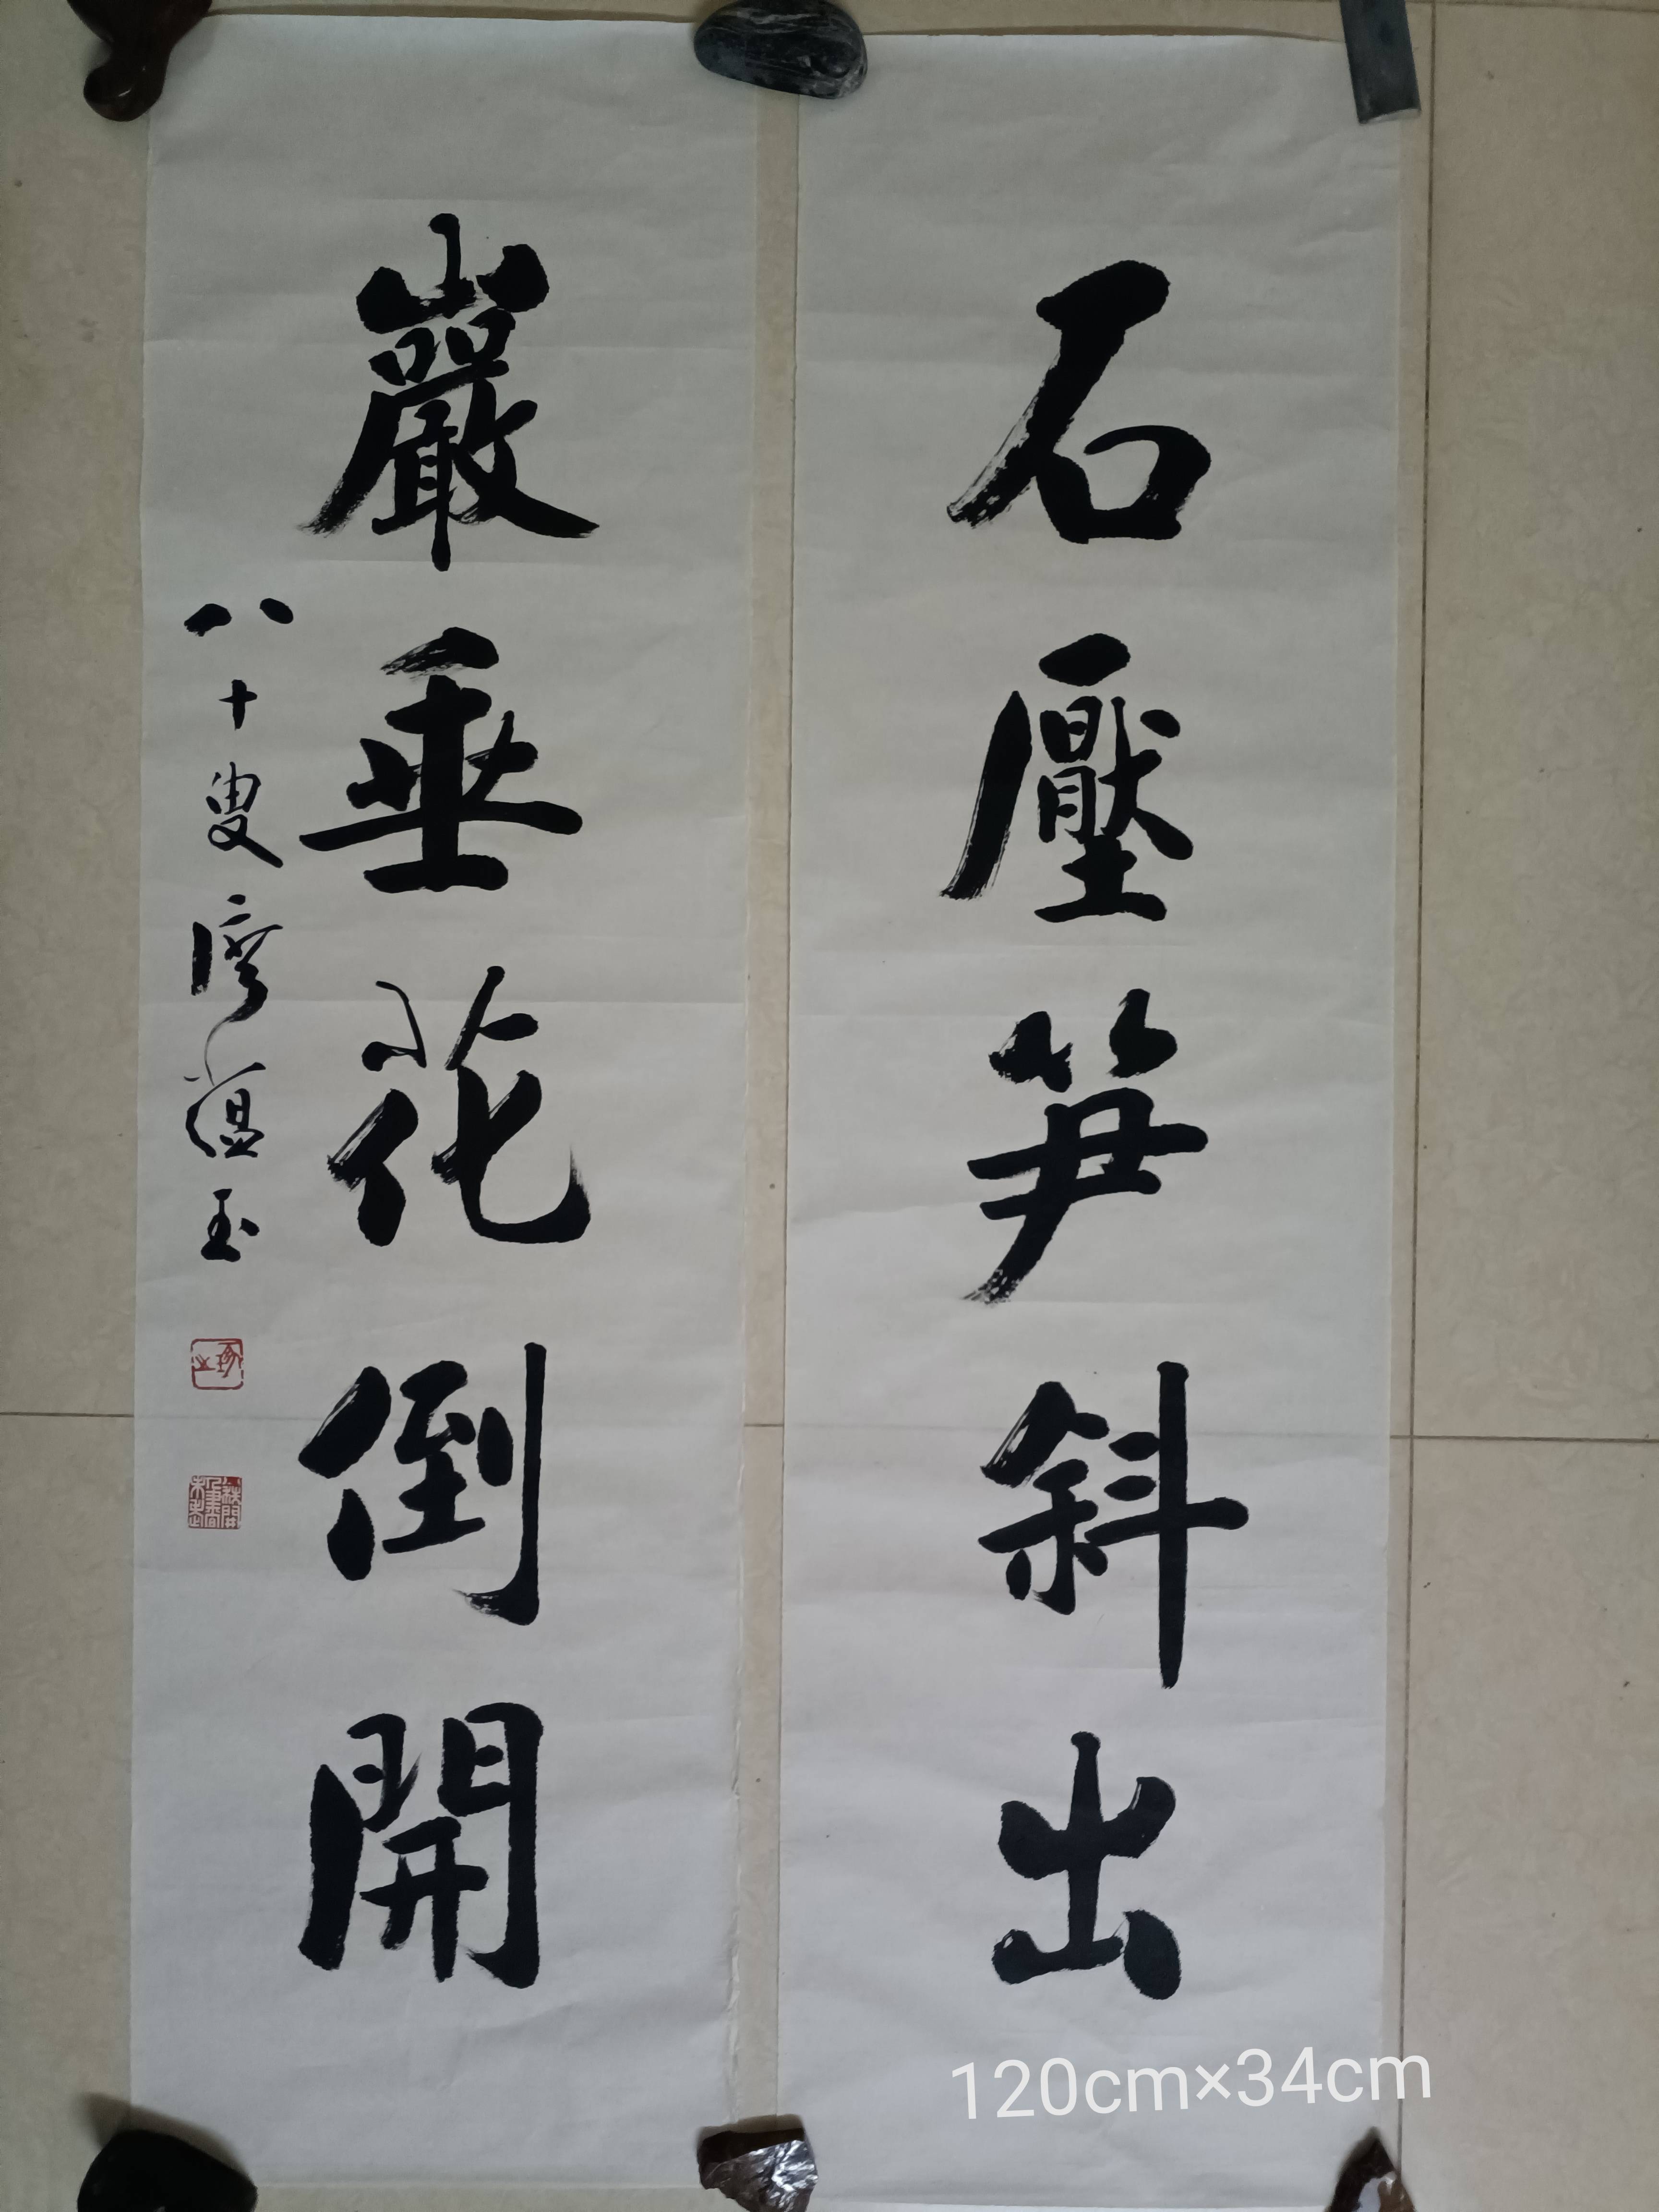 石壓笋斜出
巖垂花倒開
八十叟廖蕴玉
120cm×34cm